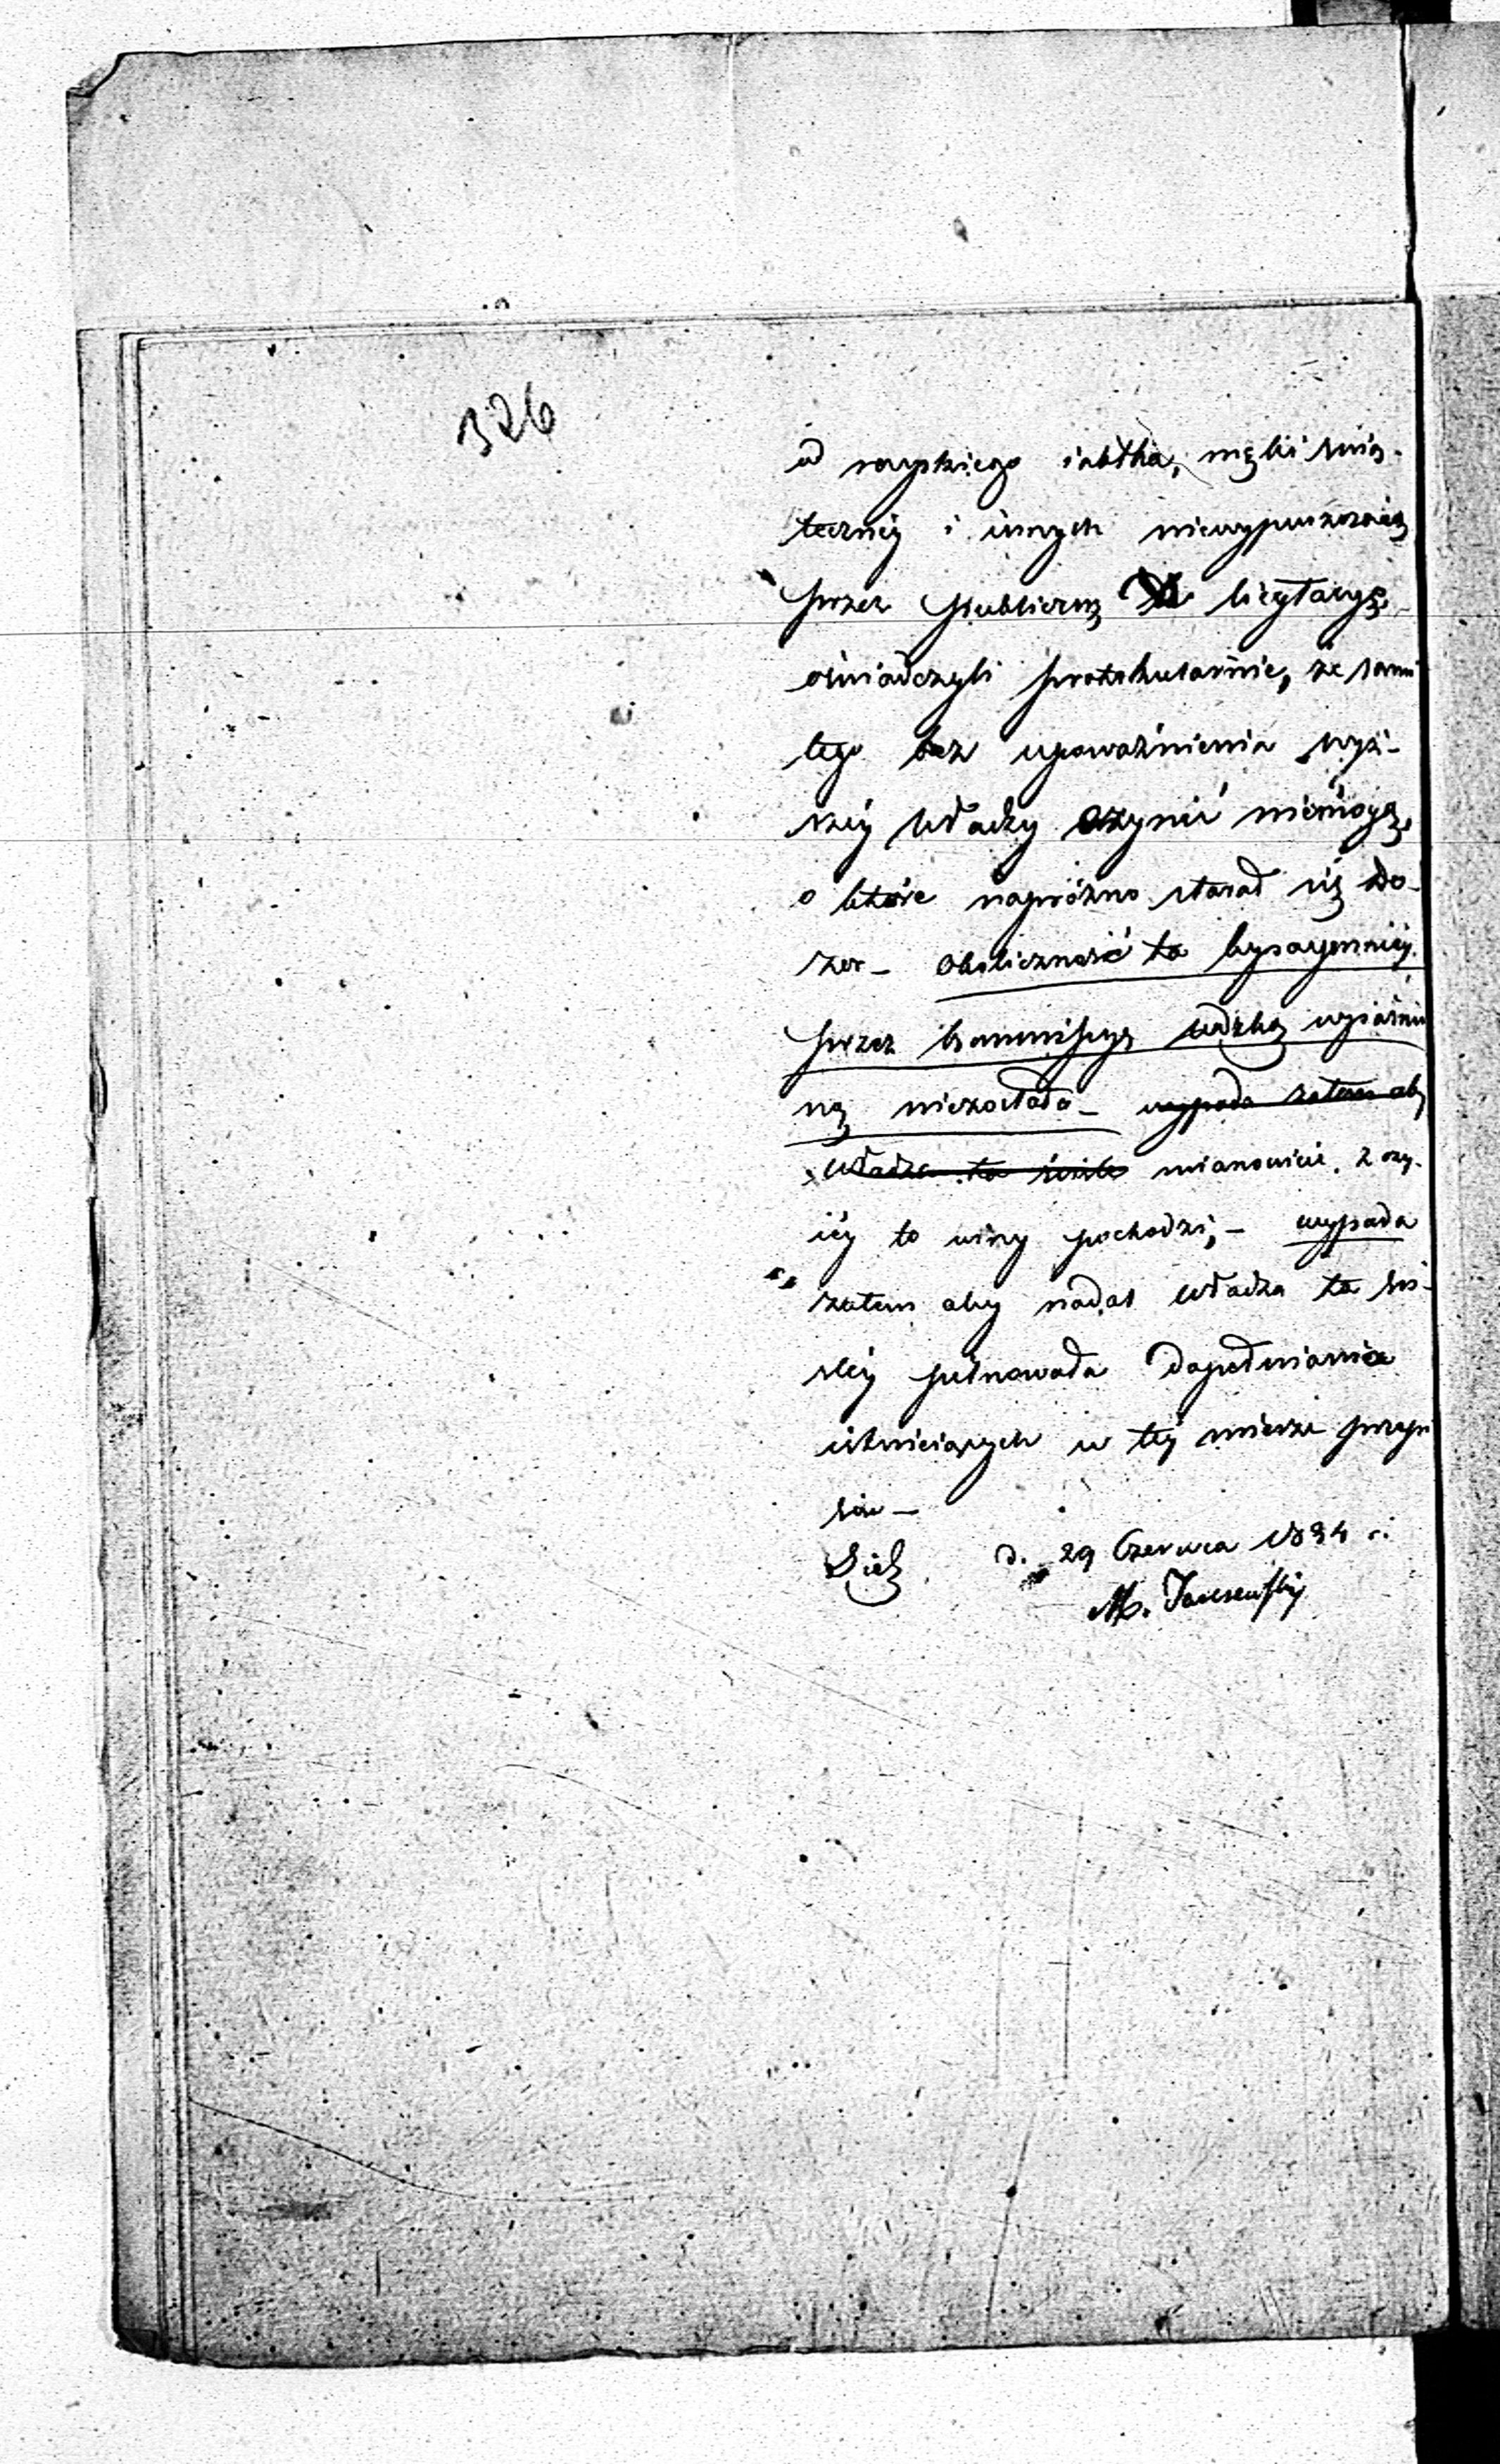 326
od rayskiego iabłka, męki świą-
teczney i innych niewypuszczaią
przez Publiczną licytacyę,
oświadczyli protokularnie, że sami
tego bez upoważnienia wyż-
szey władzy czynić niemogą,
o które napróżno starał się Do-
zor - okoliczność ta
przez Kommissyą wdzką wyiaśnio
ną niezostała - wypada zatem aby
władza ta ściśle mianowicie, z czy-
iéy to winy pochodzi, - wypada
zatem aby nadal władza ta ści-
śley pilnowała dopełniania
istnieiących w téy mierze przepi
sów -
d. 29 Czerwca 1834 r: